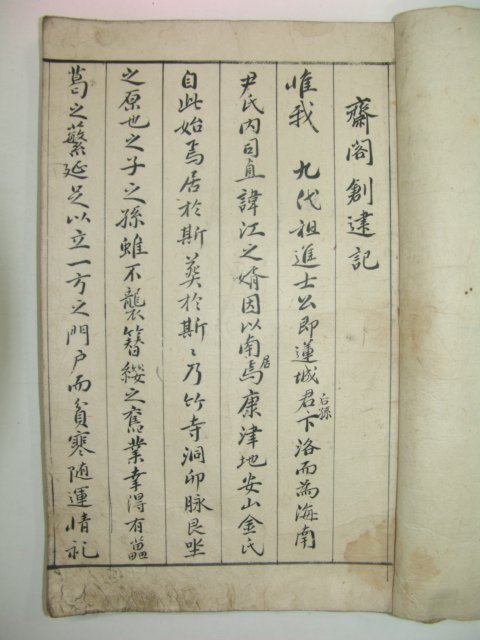 齋閣創建記
惟我 九代祖進士公即蓮城君后孫下洛而為海南
尹氏內司直諱江之婿因以南焉居康津地安山金氏
自此始焉居於斯葬於斯〻乃竹寺洞卯脉艮坐
之原也之子之孫雖不襲簪纓之舊業幸得有藟
葛之蘩延足以立一方之門戶而貧寒随運情礼